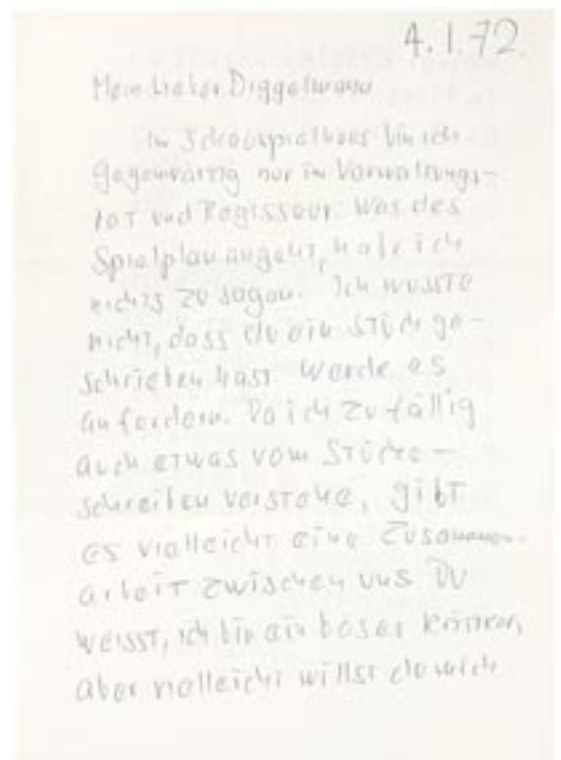 4.1.72.
Mein lieber Diggelmann
Im Schauspielhaus bin ich
gegenwärtig nur im Verwaltungs-
rat und Regisseur. Was den
Spielplan angeht, habe ich
nichts zu sagen. Ich wusste
nicht, dass du ein Stück ge-
schrieben hast. Werde es
anfordern. Da ich zufällig
auch etwas vom Stücke-
schreiben verstehe, gibt
es vielleicht eine Zusammen-
arbeit zwischen uns. Du
weisst, ich bin ein böser Kritiker,
aber vielleicht willst du mich